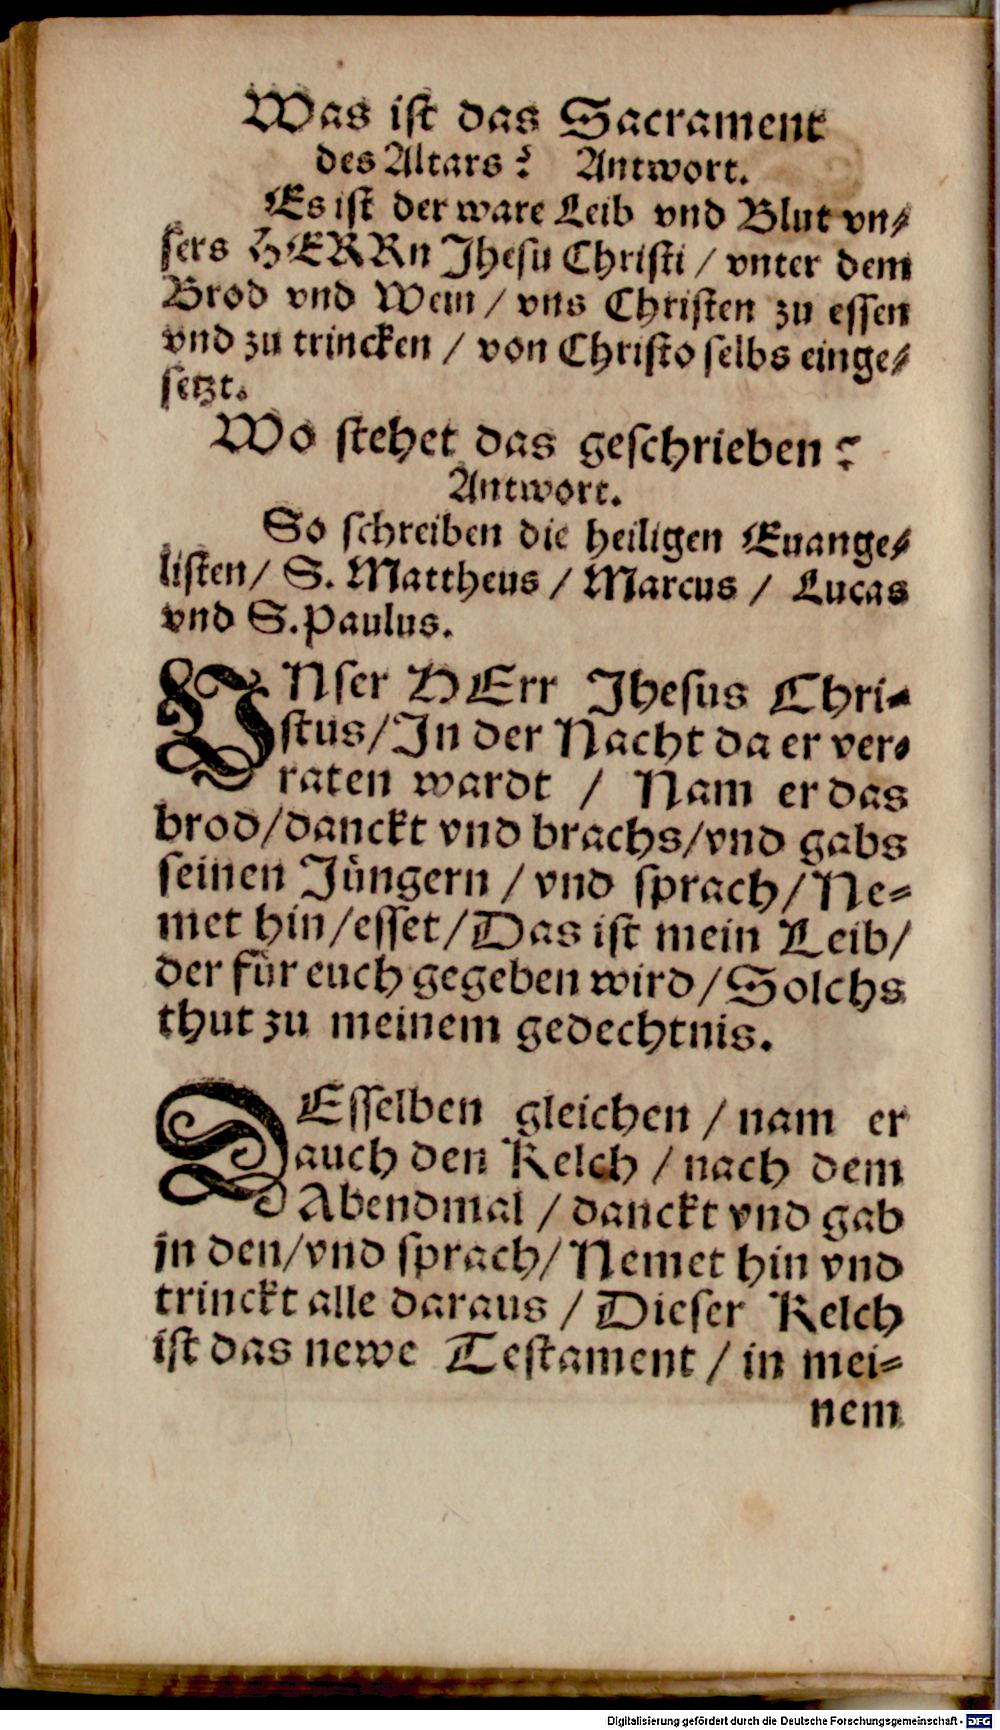 Was iſt das Sacrament
des Altars? Antwort.
Es iſt der ware Leib vnd Blut vn⸗
ſers HERRn Jheſu Chriſti / vnter dem
Brod vnd Wein / vns Chriſten zu eſſen
vnd zu trincken / von Chriſto ſelbs einge⸗
ſetzt.
Wo ſtehet das geſchrieben?
Antwort.
So ſchreiben die heiligen Euange⸗
liſten/ S. Mattheus / Marcus / Lucas
vnd S. Paulus.
VNſer HErr Jheſus Chri⸗
ſtus/Jn der Nacht da er ver⸗
raten wardt / Nam er das
brod/danckt vnd brachs/vnd gabs
ſeinen Jüngern / vnd ſprach/Ne⸗
met hin/eſſet/Das iſt mein Leib/
der für euch gegeben wird/Solchs
thut zu meinem gedechtnis.
DEſſelben gleichen / nam er
auch den Kelch / nach dem
Abendmal / danckt vnd gab
jn den/vnd ſprach/Nemet hin vnd
trinckt alle daraus / Dieſer Kelch
iſt das newe Teſtament / in mei⸗
nem
Digitalisierung gefördert durch die Deutsche Forschungsgemeinschaft - DFG